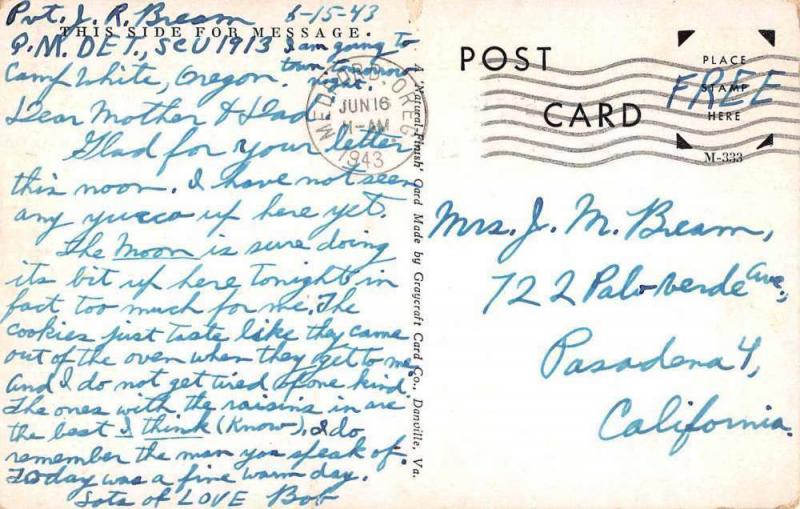 Pvt. J. R. Bream 6-15-43
THIS SIDE FOR MESSAGE.
P.M. DET., SCU 1913 I am going to
town tomorrow
night.
Camp White, Oregon.
Dear Mother & Dad
Glad for your letter
this noon. I have not seen
any yucca up here yet.
The Moon is sure doing
its bit up here tonight in
fact too much for me. The
cookies just taste like they came
out of the oven when they get to me
and I do not get tired of one kind.
The ones with the raisins in are
the best I think (Know). I do
remember the man you speak of.
Today was a fine warm day.
Lots of LOVE Bob
MEDFORD, OREG.
JUN 16
-AM
1943
A 'Natural-Finish' Card Made by Graycraft Card Co., Danville, Va.
POST
CARD
PLACE
STAMP
HERE
FREE
M-333
Mrs. J. M. Bream,
722 Palo-verde Ave.,
Pasadena 4,
California.